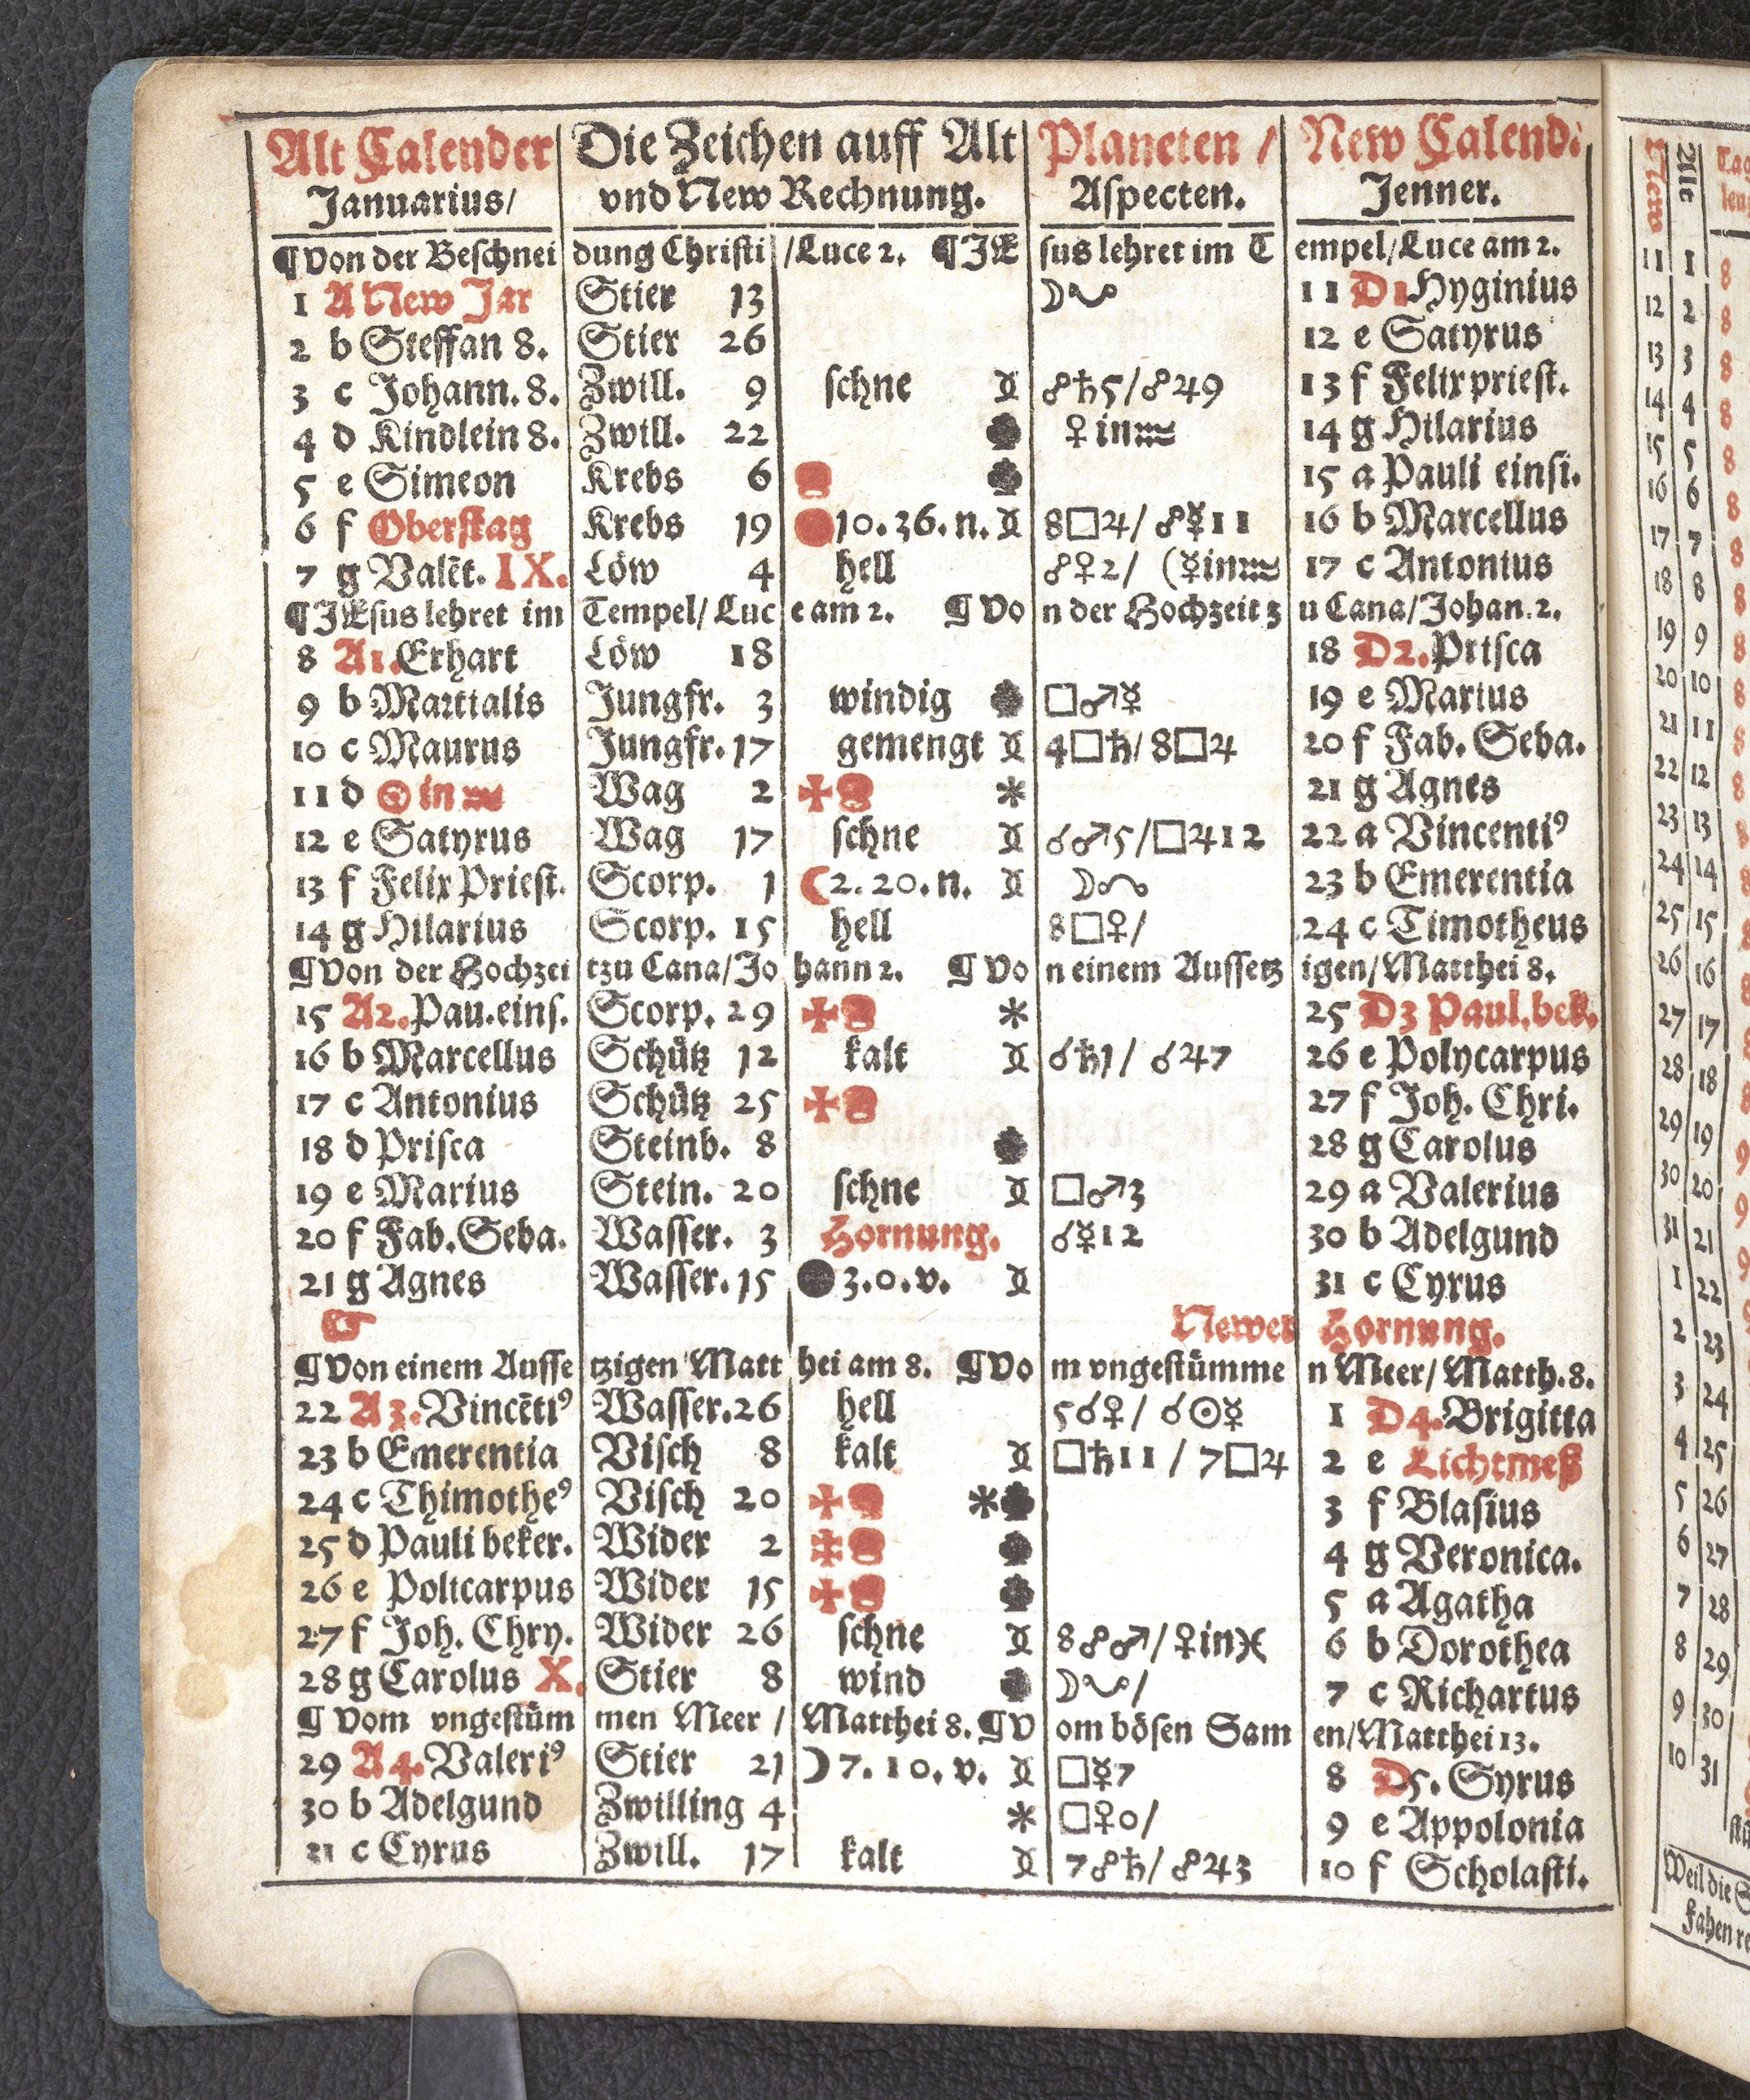 Alt Calender Die Zeichen auff Alt Planeten / New Calend:
Januarius/ vnd New Rechnung. Aspecten. Jenner.
¶Von der Beschneidung Christi /Luce 2. ¶JEsus lehret im Tempel/Luce am 2.
1 A New Jar Stier 13 ☽☋ 11 D1 Hyginius
2 b Steffan 8. Stier 26 12 e Satyrus
3 c Johann. 8. Zwill. 9 schne ☍♄5/☍♃9 13 f Felix priest.
4 d Kindlein 8. Zwill. 22 ♀in♒ 14 g Hilarius
5 e Simeon Krebs 6 15 a Pauli einsi.
6 f Oberstag Krebs 19 10.36.n. 8□♃/☍☿11 16 b Marcellus
7 g Valēt. IX. Löw 4 hell ☍♀2/ (☿in♒ 17 c Antonius
¶JEsus lehret im Tempel/Luce am 2. ¶Von der Hochzeit zu Cana/Johan.2.
8 A1.Erhart Löw 18 18 D2.Prisca
9 b Martialis Jungfr. 3 windig □♂☿ 19 e Marius
10 c Maurus Jungfr. 17 gemengt 4□♄/8□♃ 20 f Fab. Seba.
11 d ☉in♒ Wag 2 ✠ * 21 g Agnes
12 e Satyrus Wag 17 schne ☌♂5/□♃12 22 a Vincentiꝰ
13 f Felix Priest. Scorp. 1 ☾2.20.n. ☽☊ 23 b Emerentia
14 g Hilarius Scorp. 15 hell 8□♀/ 24 c Timotheus
¶Von der Hochzeit zu Cana/Johann 2. ¶Von einem Aussetzigen/Matthei 8.
15 A2.Pau.eins. Scorp. 29 ✠ * 25 D3 Paul.bek.
16 b Marcellus Schütz 12 kalt ☌♄1/ ☌♃7 26 e Polycarpus
17 c Antonius Schütz 25 ✠ 27 f Joh. Chri.
18 d Prisca Steinb. 8 28 g Carolus
19 e Marius Stein. 20 schne □♂3 29 a Valerius
20 f Fab.Seba. Wasser. 3 Hornung. ☌☿12 30 b Adelgund
21 g Agnes Wasser. 15 ●3.0.v. 31 c Cyrus
☞ Newer Hornung.
¶Von einem Aussetzigen Matthei am 8. ¶Vom vngestümmen Meer/Matth.8.
22 A3.Vincētiꝰ Wasser.26 hell 5☌♀/ ☌☉☿ 1 D4.Brigitta
23 b Emerentia Visch 8 kalt □♄11/7□♃ 2 e Lichtmeß
24 c Thimotheꝰ Visch 20 ✠ * 3 f Blasius
25 d Pauli beker. Wider 2 4 g Veronica.
26 e Policarpus Wider 15 ✠ 5 a Agatha
27 f Joh. Chry. Wider 26 schne 8☍♂/♀in♓ 6 b Dorothea
28 g Carolus X. Stier 8 wind ☽☋/ 7 c Richartus
¶Vom vngestümmen Meer / Matthei 8. ¶Vom bösen Samen/Matthei 13.
29 A4.Valeriꝰ Stier 21 ☽7.10.v. □☿7 8 D5.Syrus
30 b Adelgund Zwilling 4 * □♀0/ 9 e Appolonia
31 c Cyrus Zwill. 17 kalt 7☍♄/☍♃3 10 f Scholasti.
New Alt Tag
11 1 8
12 2 8
13 3 8
14 4 8
15 5 8
16 6 8
17 7 8
18 8 8
19 9 8
20 10 8
21 11 8
22 12 8
23 13 8
24 14 8
25 15 8
26 16 8
27 17 8
28 18 8
29 19 9
30 20 9
31 21 9
1 22 9
2 23
3 24
4 25
5 26
6 27
7 28
8 29
9 30
10 31
Weil die